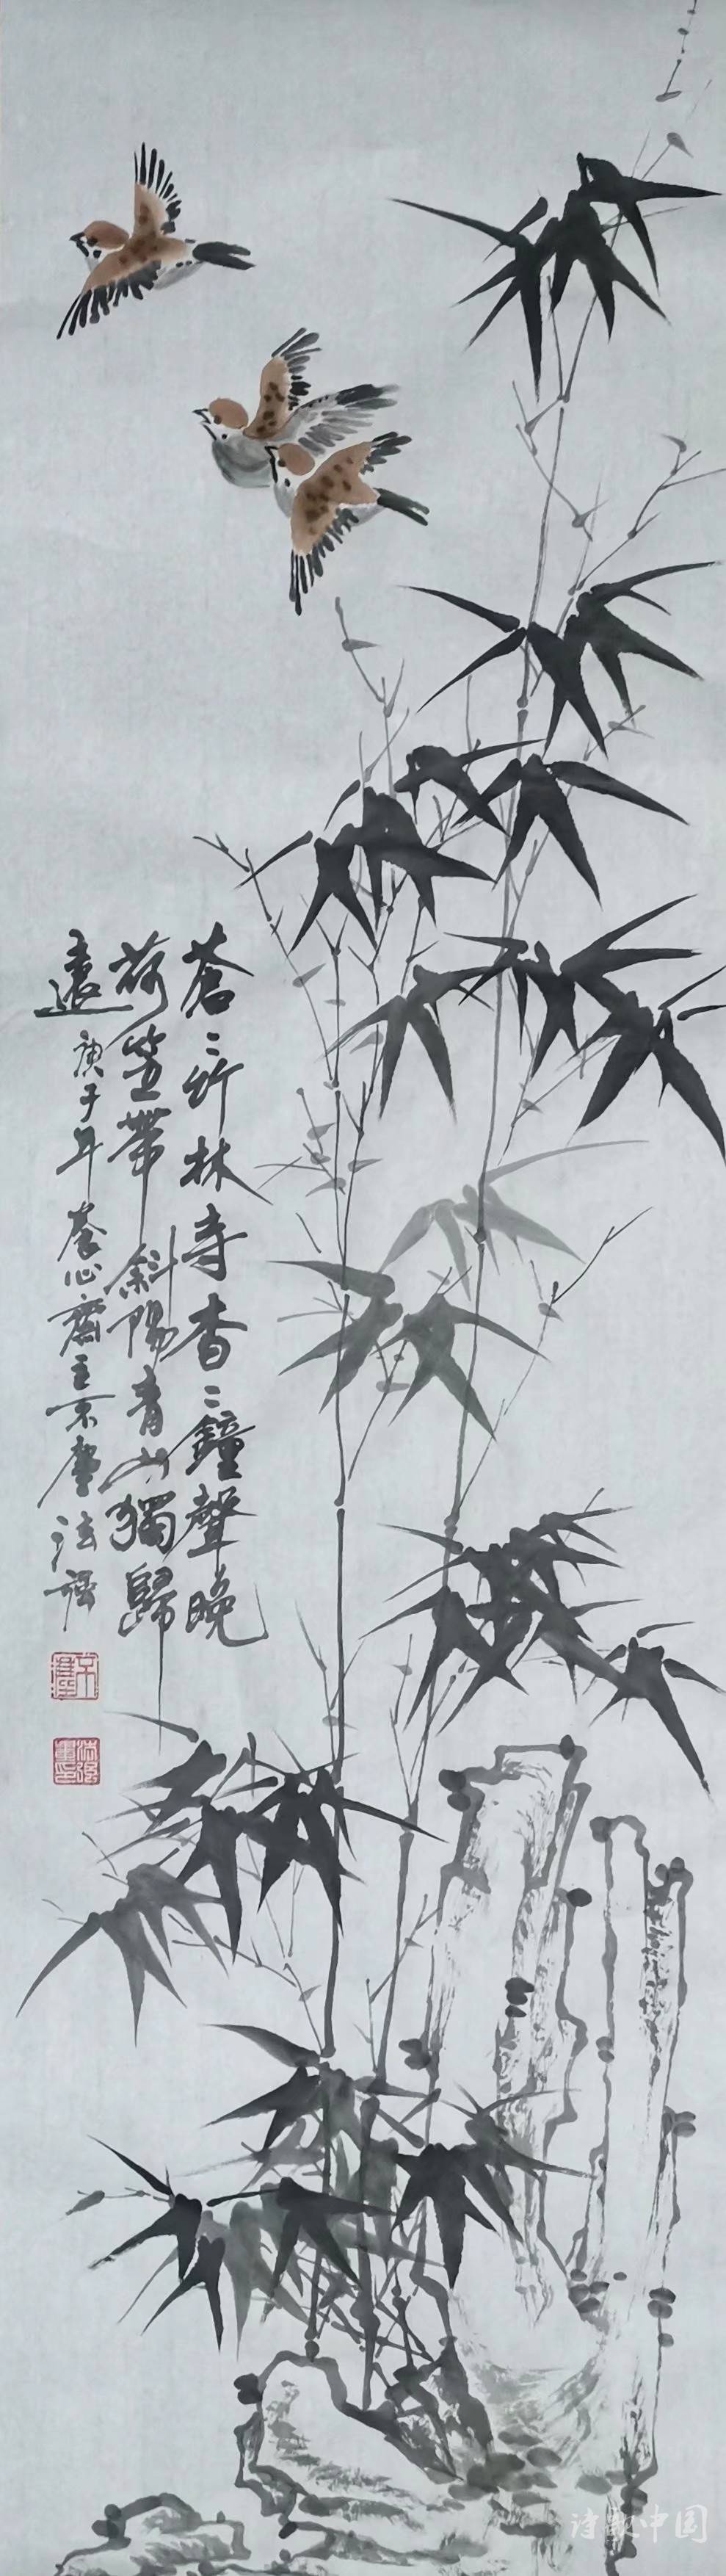 蒼〻竹林寺杳〻鐘聲晚
荷笠帶斜陽青山獨歸
遠 庚子年養心齋主
诗歌中国